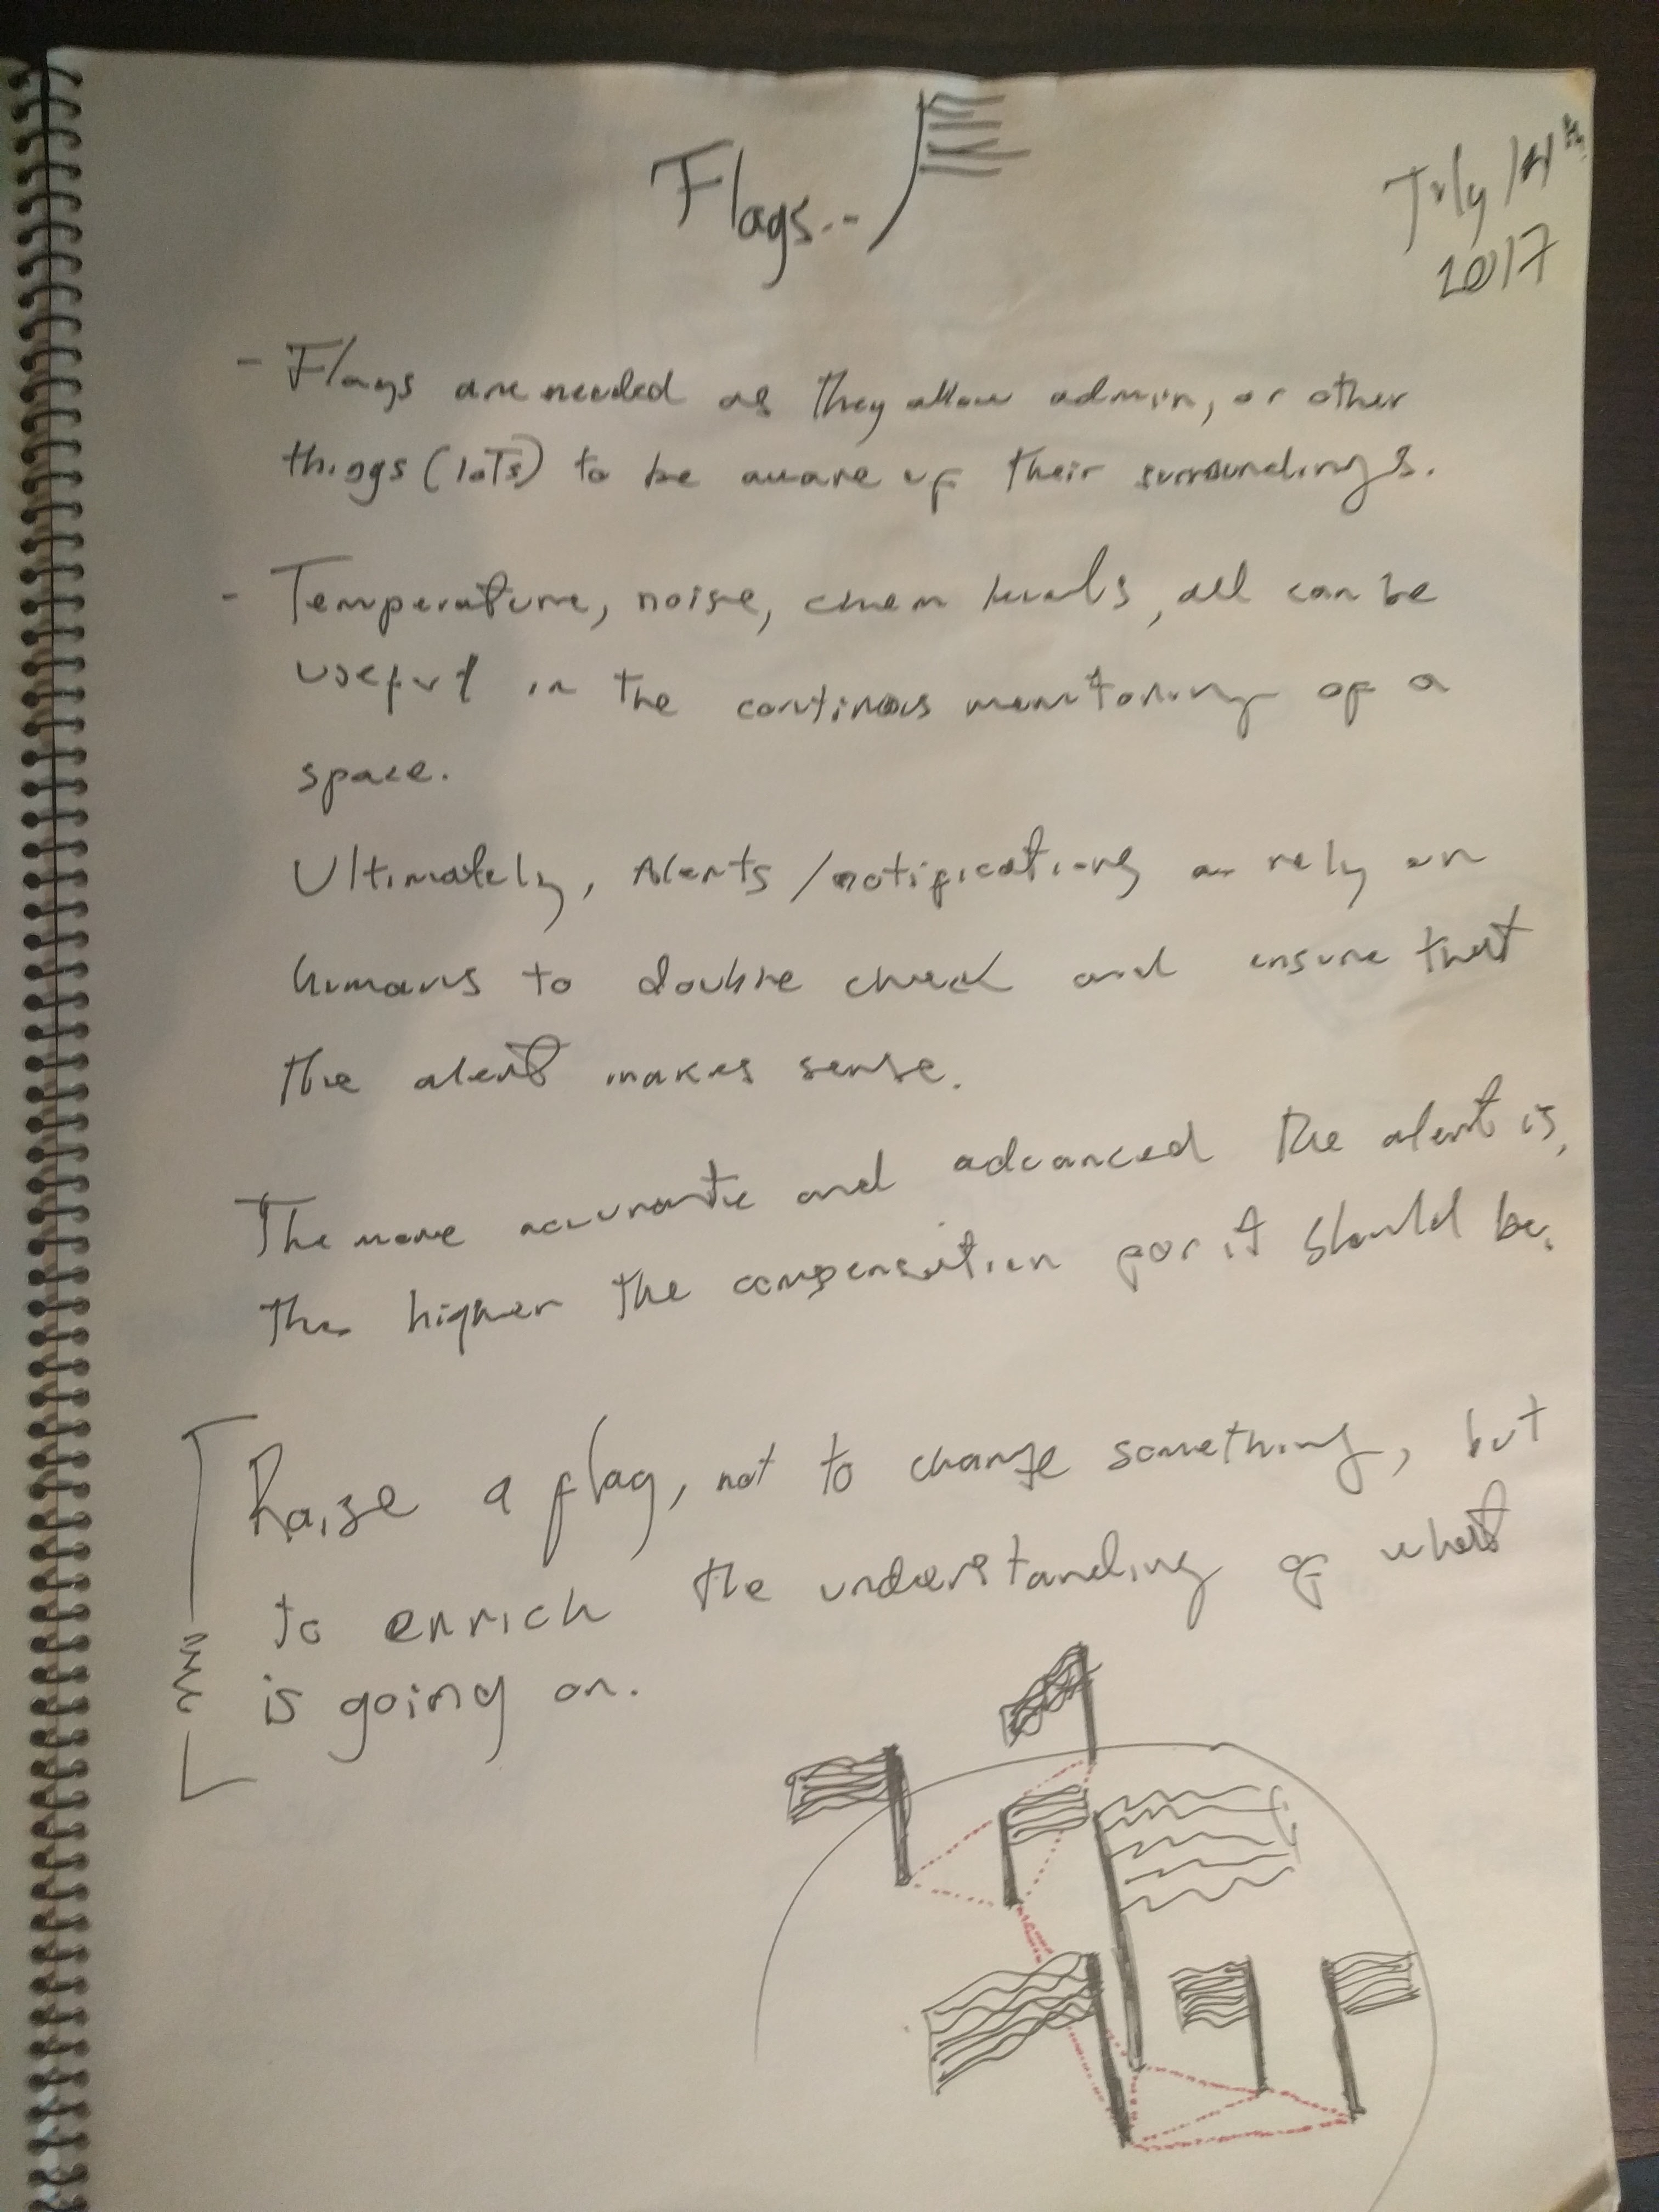 Flags...
July 14th
2017
- Flags are needed as they allow admin, or other
things (IoTs) to be aware of their surroundings.
- Temperature, noise, chem levels, all can be
useful in the continous monitoring of a
space.
Ultimately, Alerts/notifications rely on
humans to double check and ensure that
the alert makes sense.
The more accurate and advanced the alert is,
the higher the compensation for it should be.
Raise a flag, not to change something, but
to enrich the understanding of what
is going on.